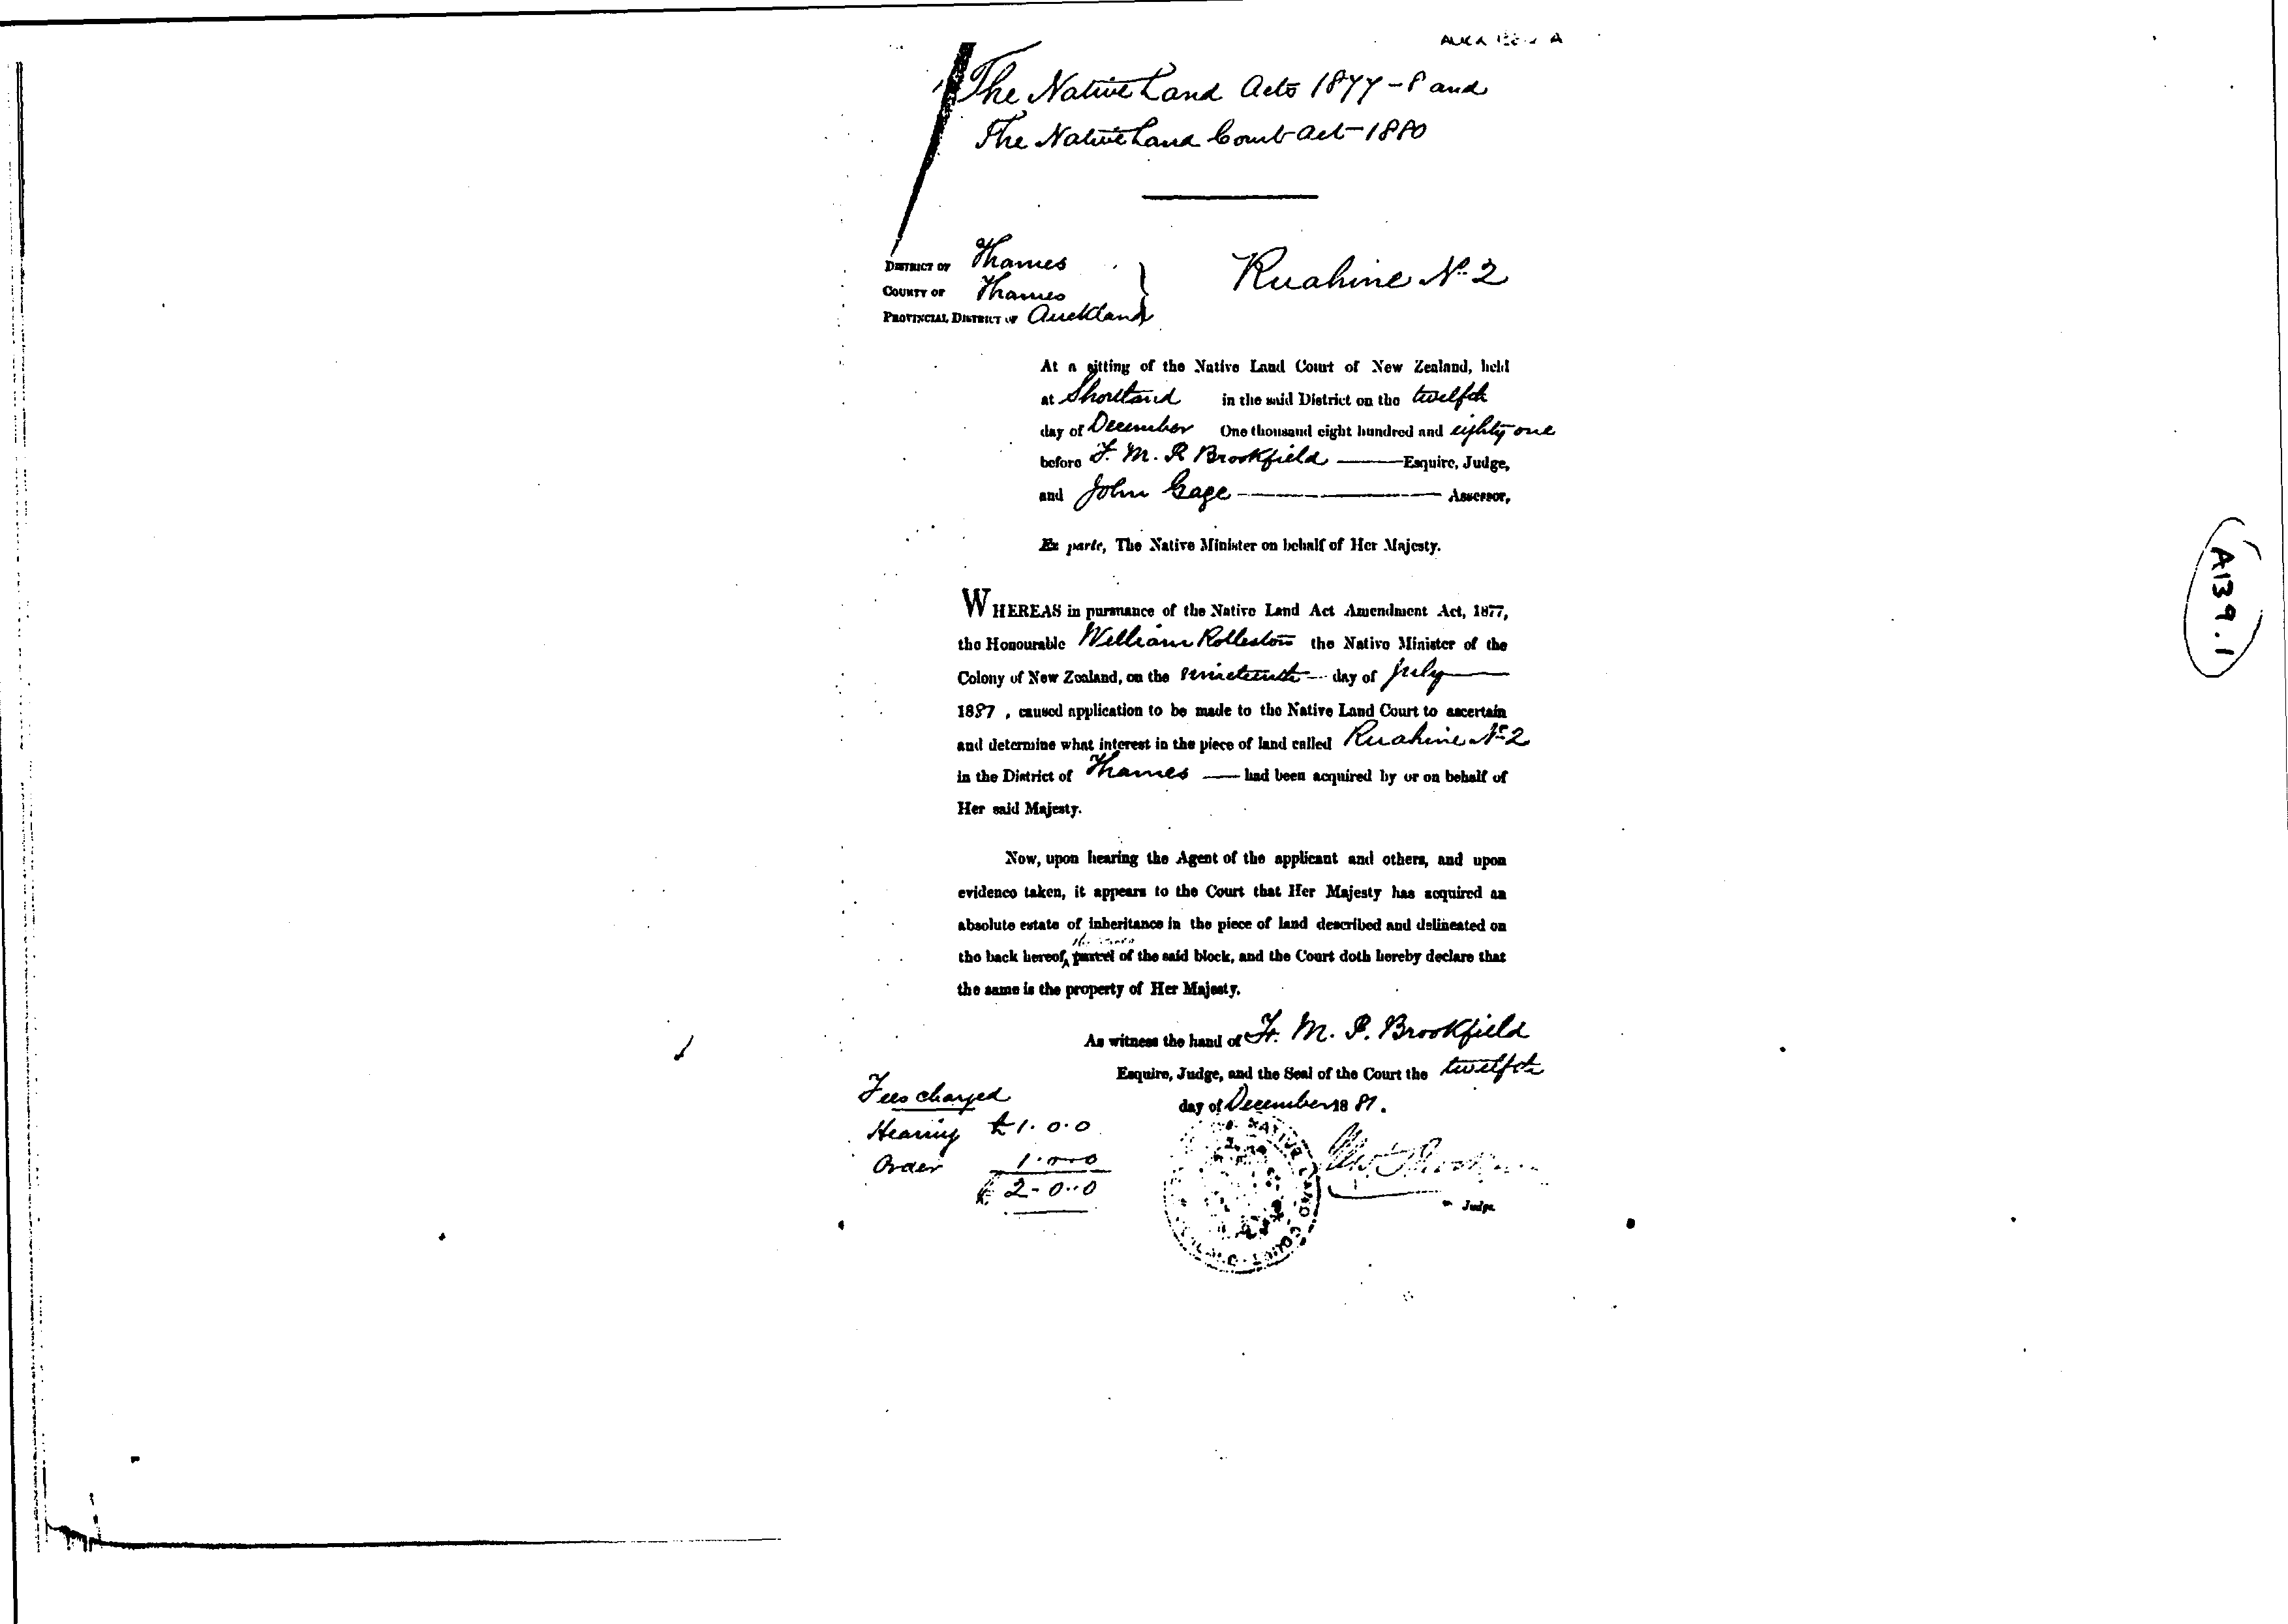 The Native Land Acts 1877-8 and
The Native Land Court Act 1880
DISTRICT OF Thames
COUNTY OF Thames
PROVINCIAL DISTRICT OF Auckland
Ruahine No 2
At a sitting of the Native Land Court of New Zealand, held
at Shortland in the said District on the twelfth
day of December One thousand eight hundred and eighty one
before F. M. P. Brookfield Esquire, Judge,
and John Gage Assessor,
Ex parte, The Native Minister on behalf of Her Majesty.
WHEREAS in pursuance of the Native Land Act Amendment Act, 1877,
the Honourable William Rolleston the Native Minister of the
Colony of New Zealand, on the nineteenth day of July
188 , caused application to be made to the Native Land Court to ascertain
and determine what interest in the piece of land called Ruahine No 2
in the District of Thames had been acquired by or on behalf of
Her said Majesty.
Now, upon hearing the Agent of the applicant and others, and upon
evidence taken, it appears to the Court that Her Majesty has acquired an
absolute estate of inheritance in the piece of land described and delineated on
the back hereof, parcel of the said block, and the Court doth hereby declare that
the same is the property of Her Majesty.
As witness the hand of F. M. P. Brookfield
Esquire, Judge, and the Seal of the Court the twelfth
day of December 1881.
Fees charged
Hearing £1.0.0
Order 1.0.0
£2-0-0
NATIVE LAND COURT
Judge.
A139.1